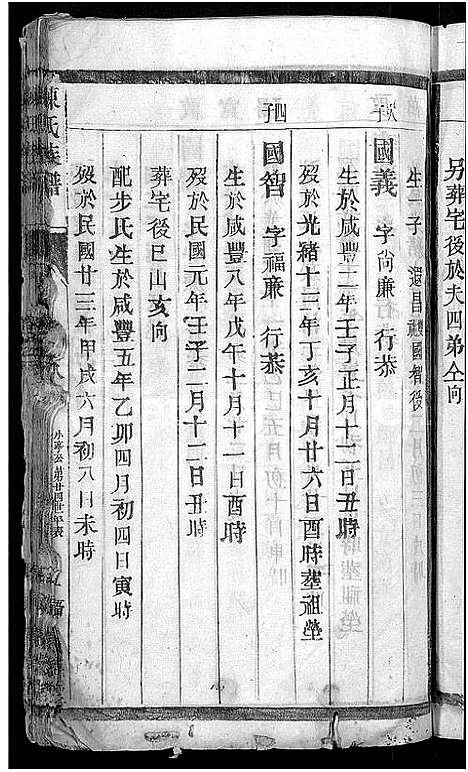 另葬宅後於夫四弟仝向
生一子 還昌 祧國智後
次子
國義 字尙廉 行恭
生於咸豐二年壬子正月十二日丑時
歿於光緒十三年丁亥十月廿六日酉時葬祖塋
四子
國智 字福廉 行恭
生於咸豐八年戊午十月十一日酉時
歿於民國元年壬子二月十二日丑時
葬宅後巳山亥向
配步氏生於咸豐五年乙卯四月初四日寅時
歿於民國廿三年甲戌六月初八日未時
陳氏族譜